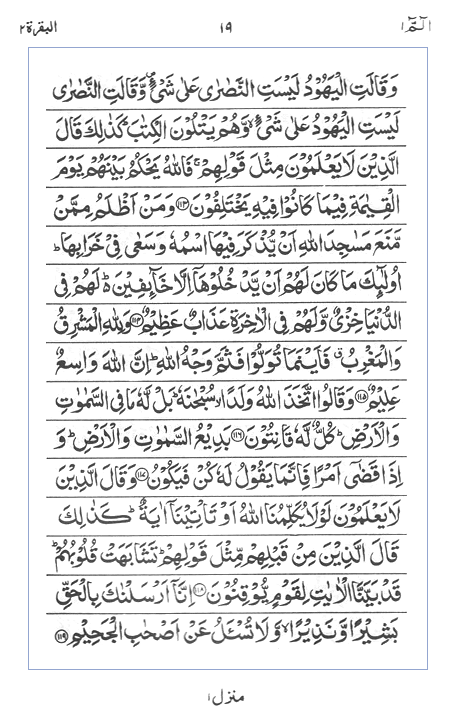 الٓمّٓ ۱ ۱۹ البقرة ۲
وَقَالَتِ الْيَهُوْدُ لَيْسَتِ النَّصٰرٰى عَلٰى شَىْءٍ وَّقَالَتِ النَّصٰرٰى
لَيْسَتِ الْيَهُوْدُ عَلٰى شَىْءٍ وَّهُمْ يَتْلُوْنَ الْكِتٰبَ كَذٰلِكَ قَالَ
الَّذِيْنَ لَا يَعْلَمُوْنَ مِثْلَ قَوْلِهِمْ ۚ فَاللّٰهُ يَحْكُمُ بَيْنَهُمْ يَوْمَ
الْقِيٰمَةِ فِيْمَا كَانُوْا فِيْهِ يَخْتَلِفُوْنَ ﴿۱۱۳﴾ وَمَنْ اَظْلَمُ مِمَّنْ
مَّنَعَ مَسٰجِدَ اللّٰهِ اَنْ يُّذْكَرَ فِيْهَا اسْمُهٗ وَسَعٰى فِيْ خَرَابِهَا ؕ
اُولٰٓئِكَ مَا كَانَ لَهُمْ اَنْ يَّدْخُلُوْهَاۤ اِلَّا خَآئِفِيْنَ ؕ لَهُمْ فِى
الدُّنْيَا خِزْىٌ وَّلَهُمْ فِى الْاٰخِرَةِ عَذَابٌ عَظِيْمٌ ﴿۱۱۴﴾ وَلِلّٰهِ الْمَشْرِقُ
وَالْمَغْرِبُ ۗ فَاَيْنَمَا تُوَلُّوْا فَثَمَّ وَجْهُ اللّٰهِ ؕ اِنَّ اللّٰهَ وَاسِعٌ
عَلِيْمٌ ﴿۱۱۵﴾ وَقَالُوا اتَّخَذَ اللّٰهُ وَلَدًا ۙ سُبْحٰنَهٗ ؕ بَلْ لَّهٗ مَا فِى السَّمٰوٰتِ
وَالْاَرْضِ ؕ كُلٌّ لَّهٗ قٰنِتُوْنَ ﴿۱۱۶﴾ بَدِيْعُ السَّمٰوٰتِ وَالْاَرْضِ ؕ وَ
اِذَا قَضٰٓى اَمْرًا فَاِنَّمَا يَقُوْلُ لَهٗ كُنْ فَيَكُوْنُ ﴿۱۱۷﴾ وَقَالَ الَّذِيْنَ
لَا يَعْلَمُوْنَ لَوْلَا يُكَلِّمُنَا اللّٰهُ اَوْ تَاْتِيْنَاۤ اٰيَةٌ ؕ كَذٰلِكَ
قَالَ الَّذِيْنَ مِنْ قَبْلِهِمْ مِّثْلَ قَوْلِهِمْ ؕ تَشَابَهَتْ قُلُوْبُهُمْ ؕ
قَدْ بَيَّنَّا الْاٰيٰتِ لِقَوْمٍ يُّوْقِنُوْنَ ﴿۱۱۸﴾ اِنَّاۤ اَرْسَلْنٰكَ بِالْحَقِّ
بَشِيْرًا وَّنَذِيْرًا ۙ وَّلَا تُسْـَٔلُ عَنْ اَصْحٰبِ الْجَحِيْمِ ﴿۱۱۹﴾
منزل ۱